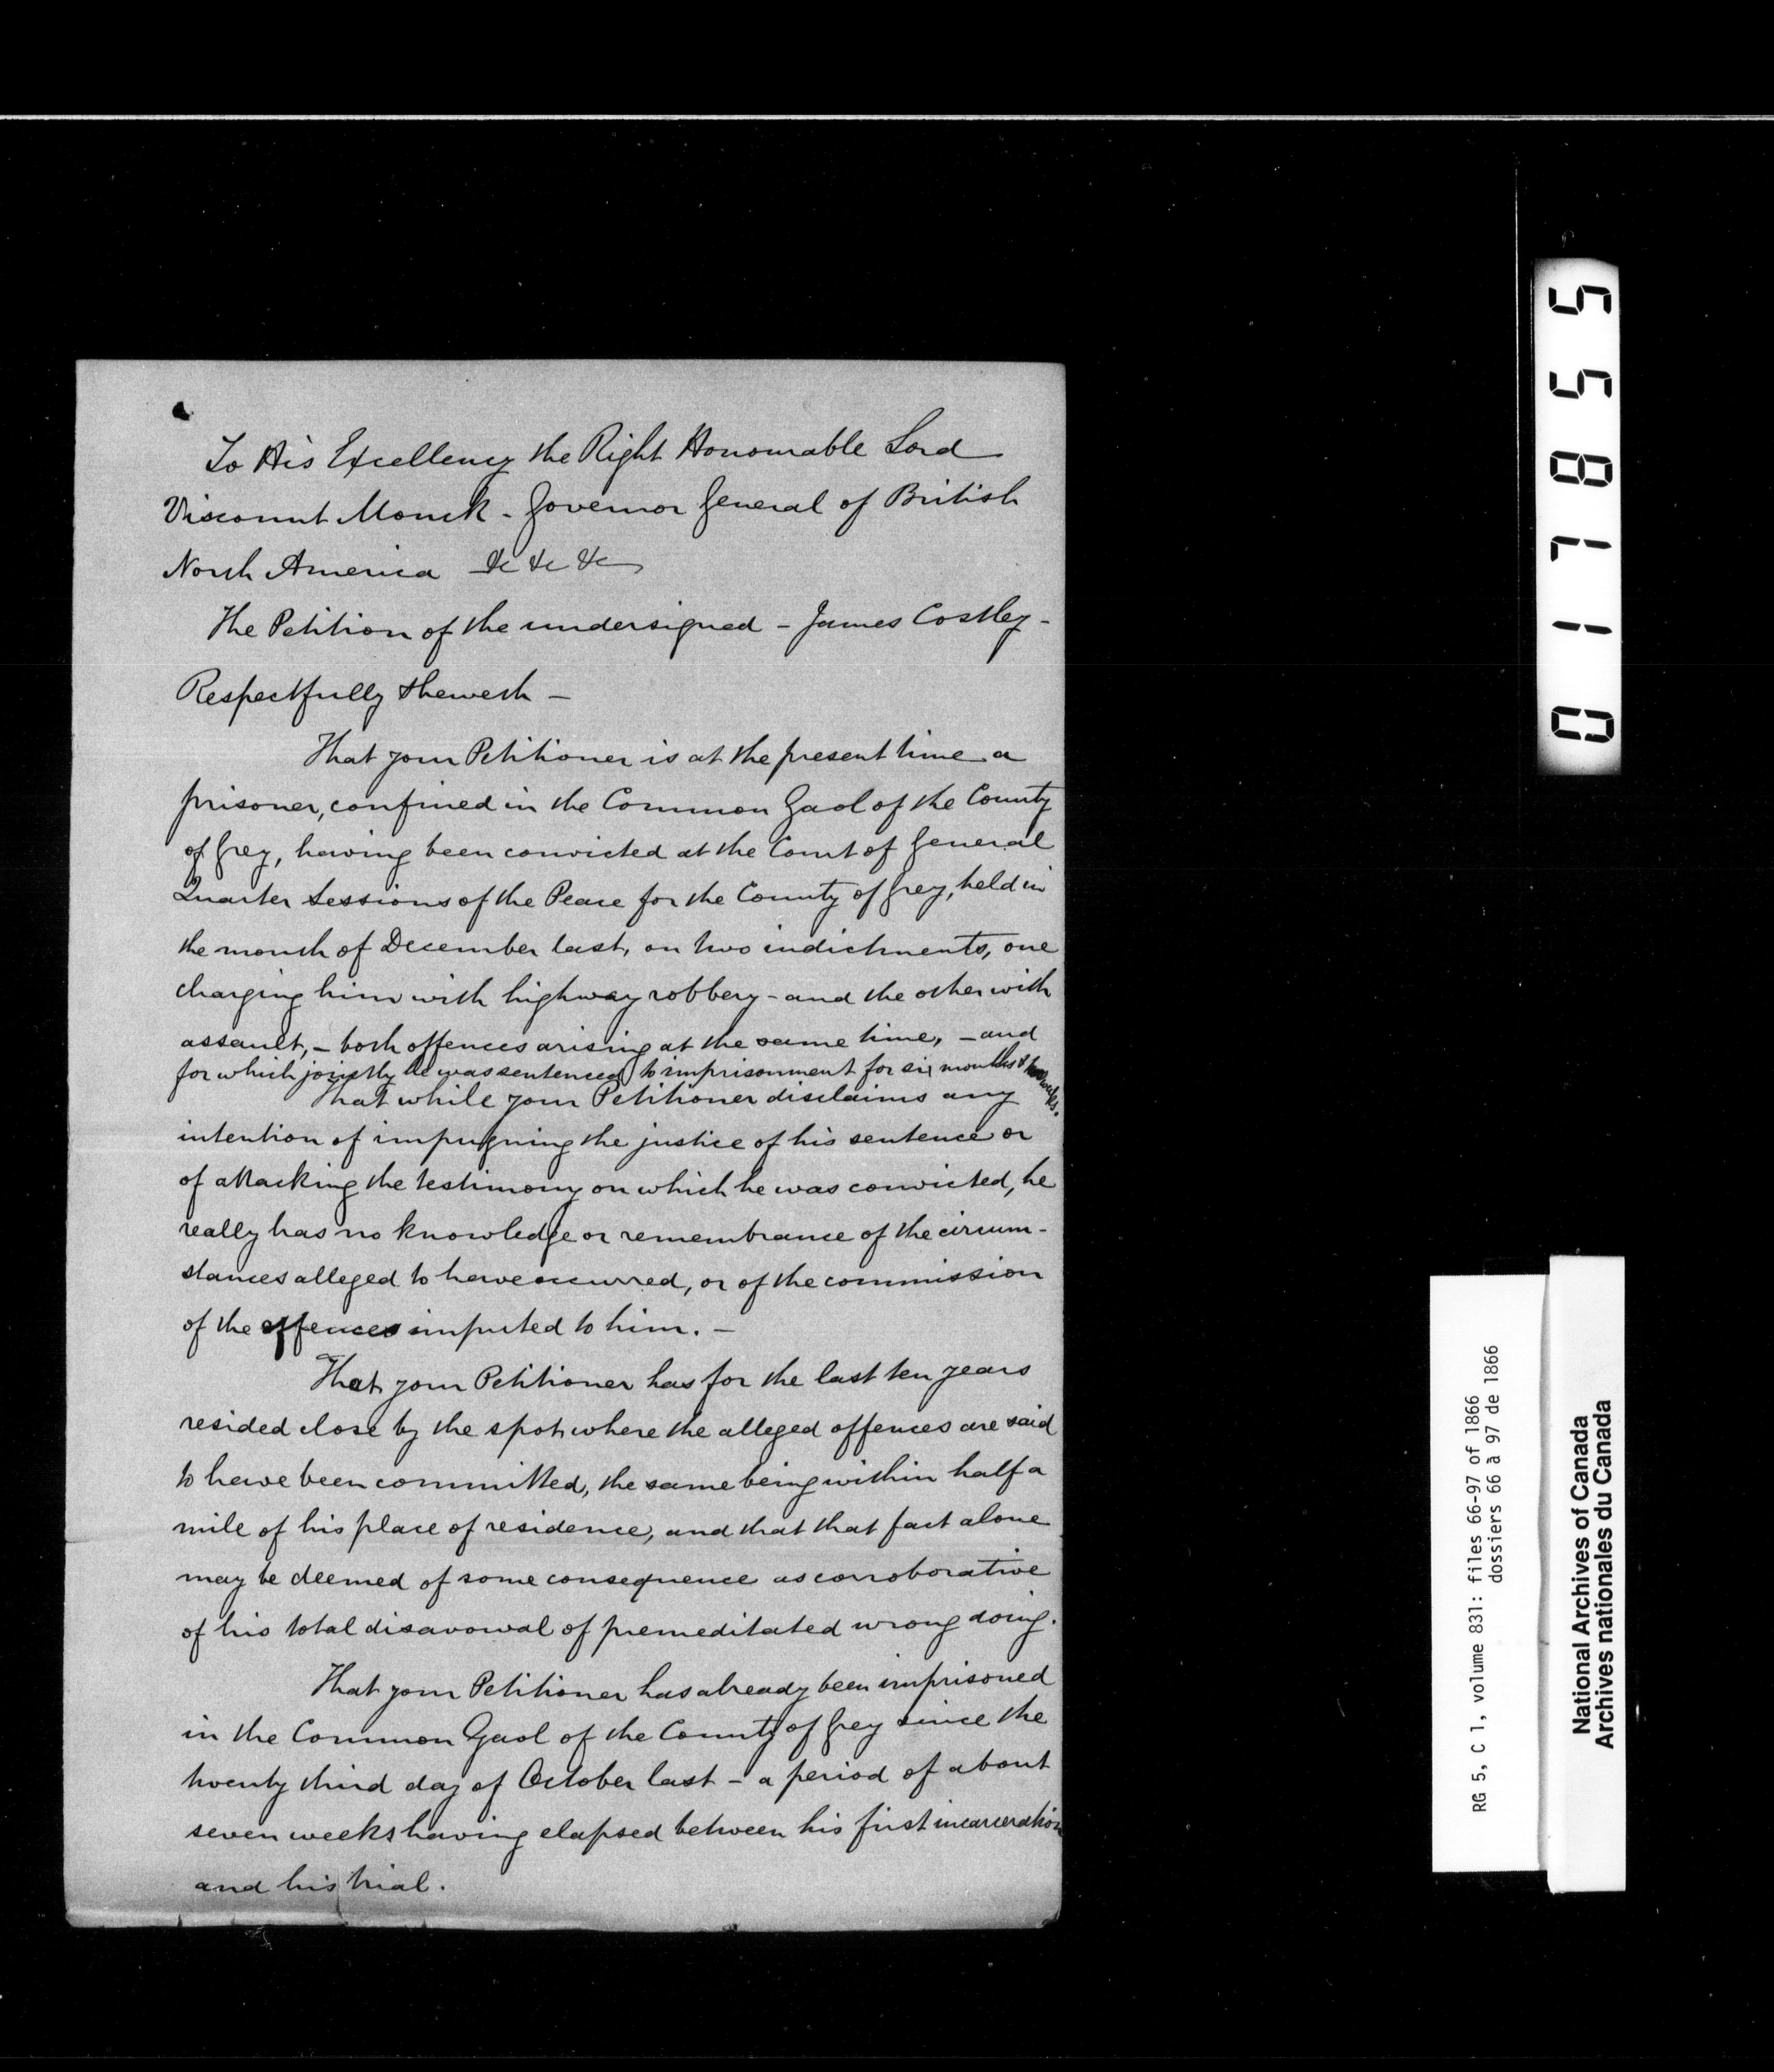 To His Excellency the Right Honourable Lord
Viscount Monck - Governor General of British
North America &c &c &c
The Petition of the undersigned - James Costley -
Respectfully sheweth -
That your Petitioner is at the present time a
prisoner, confined in the Common Gaol of the County
of Grey, having been convicted at the Court of General
Quarter Sessions of the Peace for the County of Grey, held in
the month of December last, on two indictments, one
charging him with highway robbery - and the other with
assault, - both offences arising at the same time, - and
for which jointly he was sentenced to imprisonment for six months & two weeks.
That while your Petitioner disclaims any
intention of impugning the justice of his sentence or
of attacking the testimony on which he was convicted, he
really has no knowledge or remembrance of the circum-
stances alleged to have occurred, or of the commission
of the offences imputed to him. -
That your Petitioner has for the last ten years
resided close by the spot where the alleged offences are said
to have been committed, the same being within half a
mile of his place of residence, and that that fact alone
may be deemed of some consequence as corroborative
of his total disavowal of premeditated wrong doing.
That your Petitioner has already been imprisoned
in the Common Gaol of the County of Grey since the
twenty third day of October last - a period of about
seven weeks having elapsed between his first incarceration
and his trial.
017855
RG 5, C 1, volume 831: files 66-97 of 1866
dossiers 66 à 97 de 1866
National Archives of Canada
Archives nationales du Canada